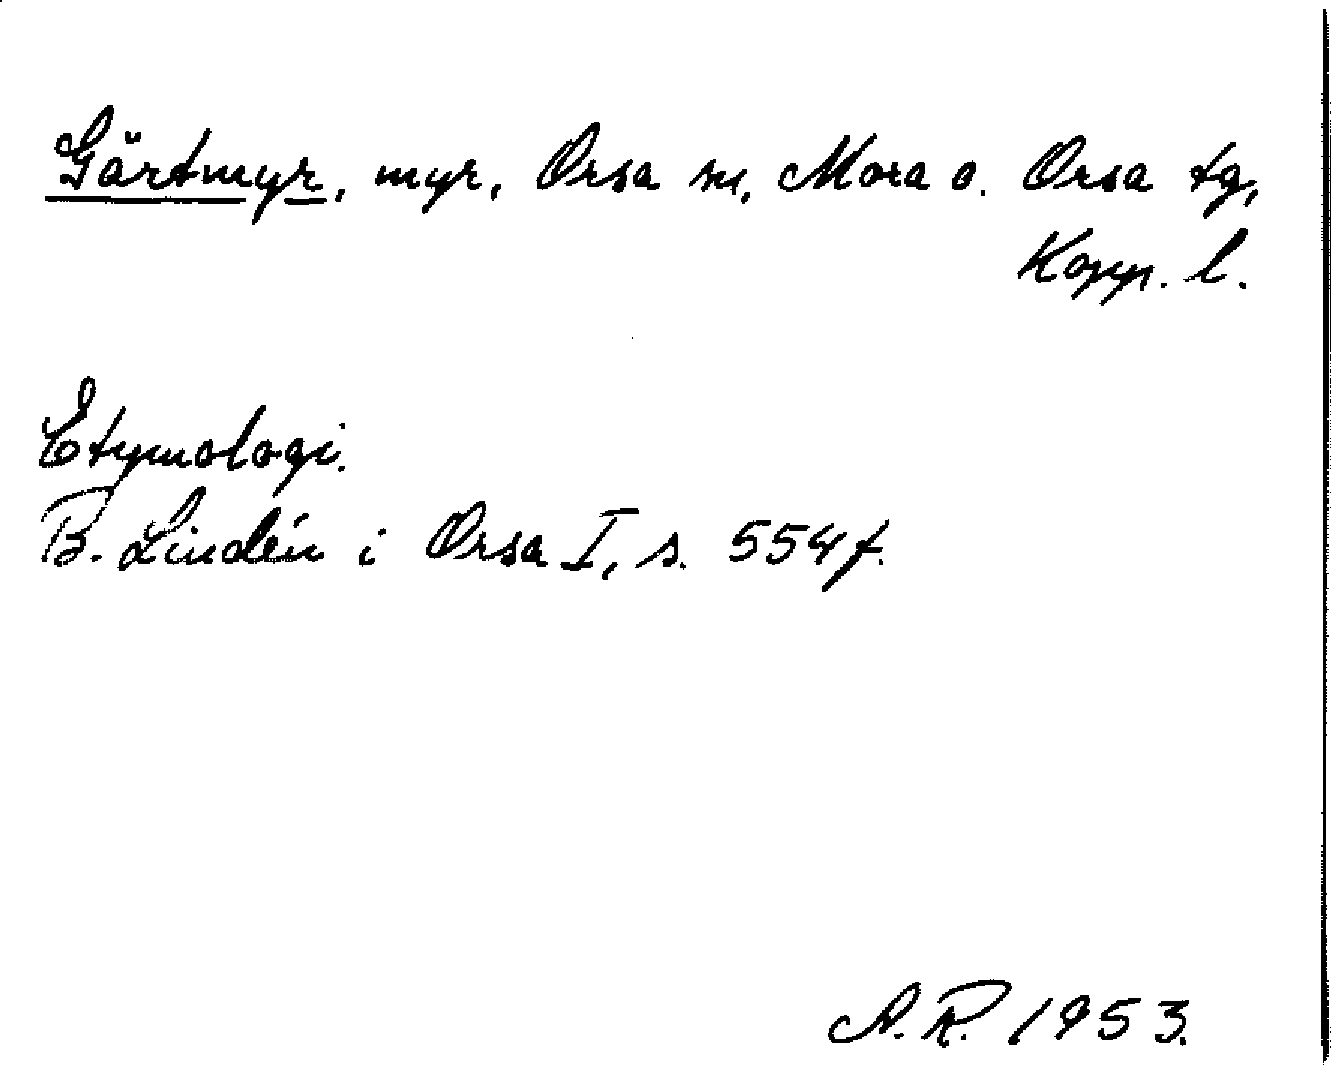 Gärtmyr, myr, Orsa sn, Mora o. Orsa tg,
Kopp. l.
Etymologi.
B. Lindén i Orsa I, s. 554 f.
A. R. 1953.